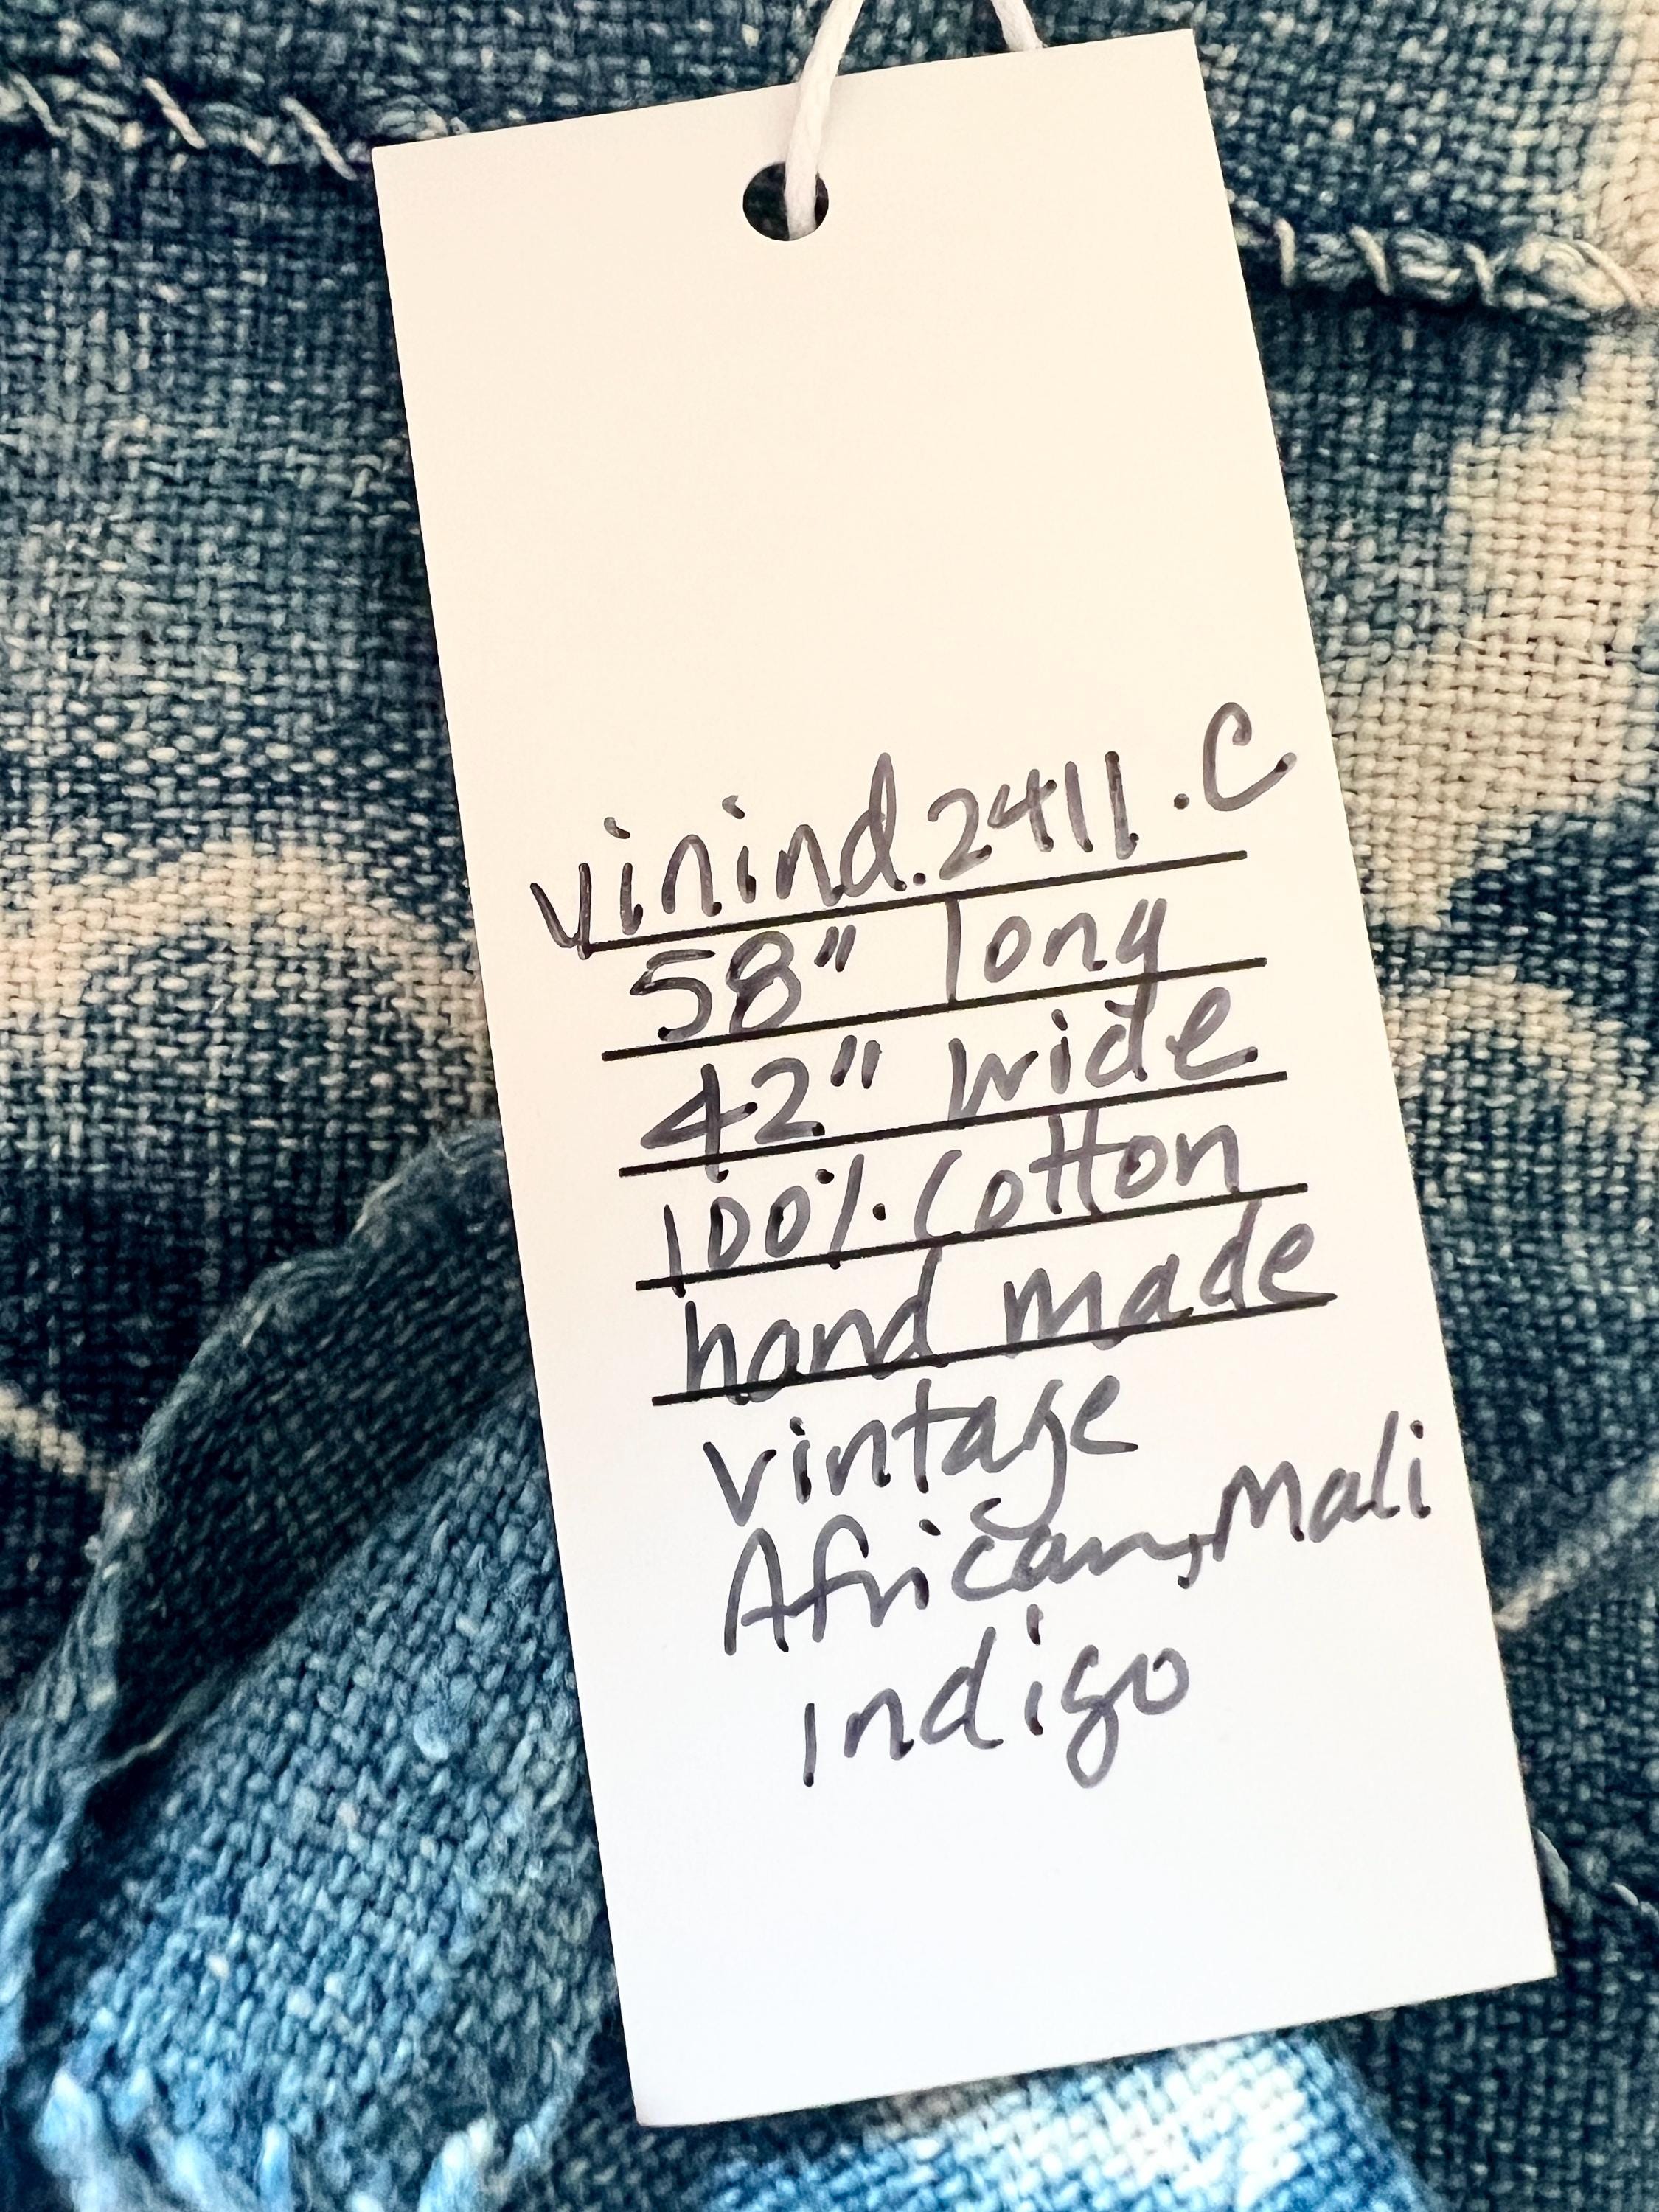 vinind.2411.C
58" long
42" wide
100% Cotton
hand made
vintage
African, Mali
indigo